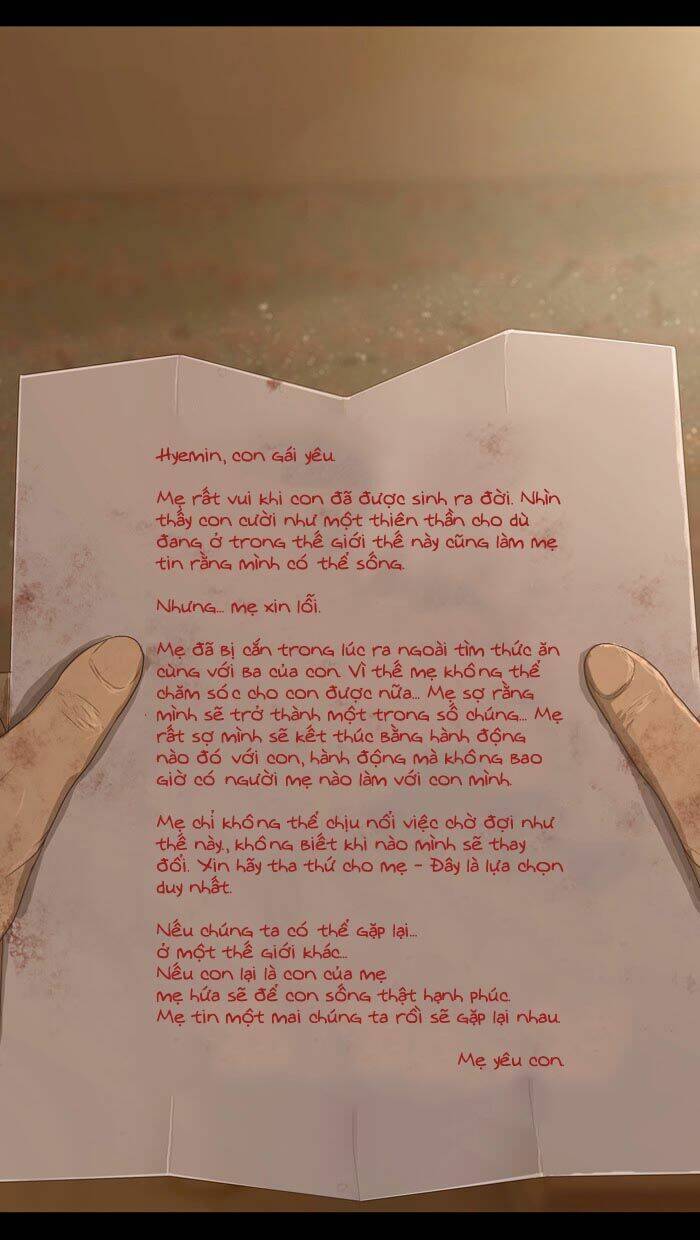 Hyemin, con gái yêu.
Mẹ rất vui khi con đã được sinh ra đời. Nhìn
thấy con cười như một thiên thần cho dù
đang ở trong thế giới thế này cũng làm mẹ
tin rằng mình có thể sống.
Nhưng... mẹ xin lỗi.
Mẹ đã bị cắn trong lúc ra ngoài tìm thức ăn
cùng với ba của con. Vì thế mẹ không thể
chăm sóc cho con được nữa... Mẹ sợ rằng
mình sẽ trở thành một trong số chúng... Mẹ
rất sợ mình sẽ kết thúc bằng hành động
nào đó với con, hành động mà không bao
giờ có người mẹ nào làm với con mình.
Mẹ chỉ không thể chịu nổi việc chờ đợi như
thế này, không biết khi nào mình sẽ thay
đổi. Xin hãy tha thứ cho mẹ - Đây là lựa chọn
duy nhất.
Nếu chúng ta có thể gặp lại...
ở một thế giới khác...
Nếu con lại là con của mẹ
mẹ hứa sẽ để con sống thật hạnh phúc.
Mẹ tin một mai chúng ta rồi sẽ gặp lại nhau.
Mẹ yêu con.